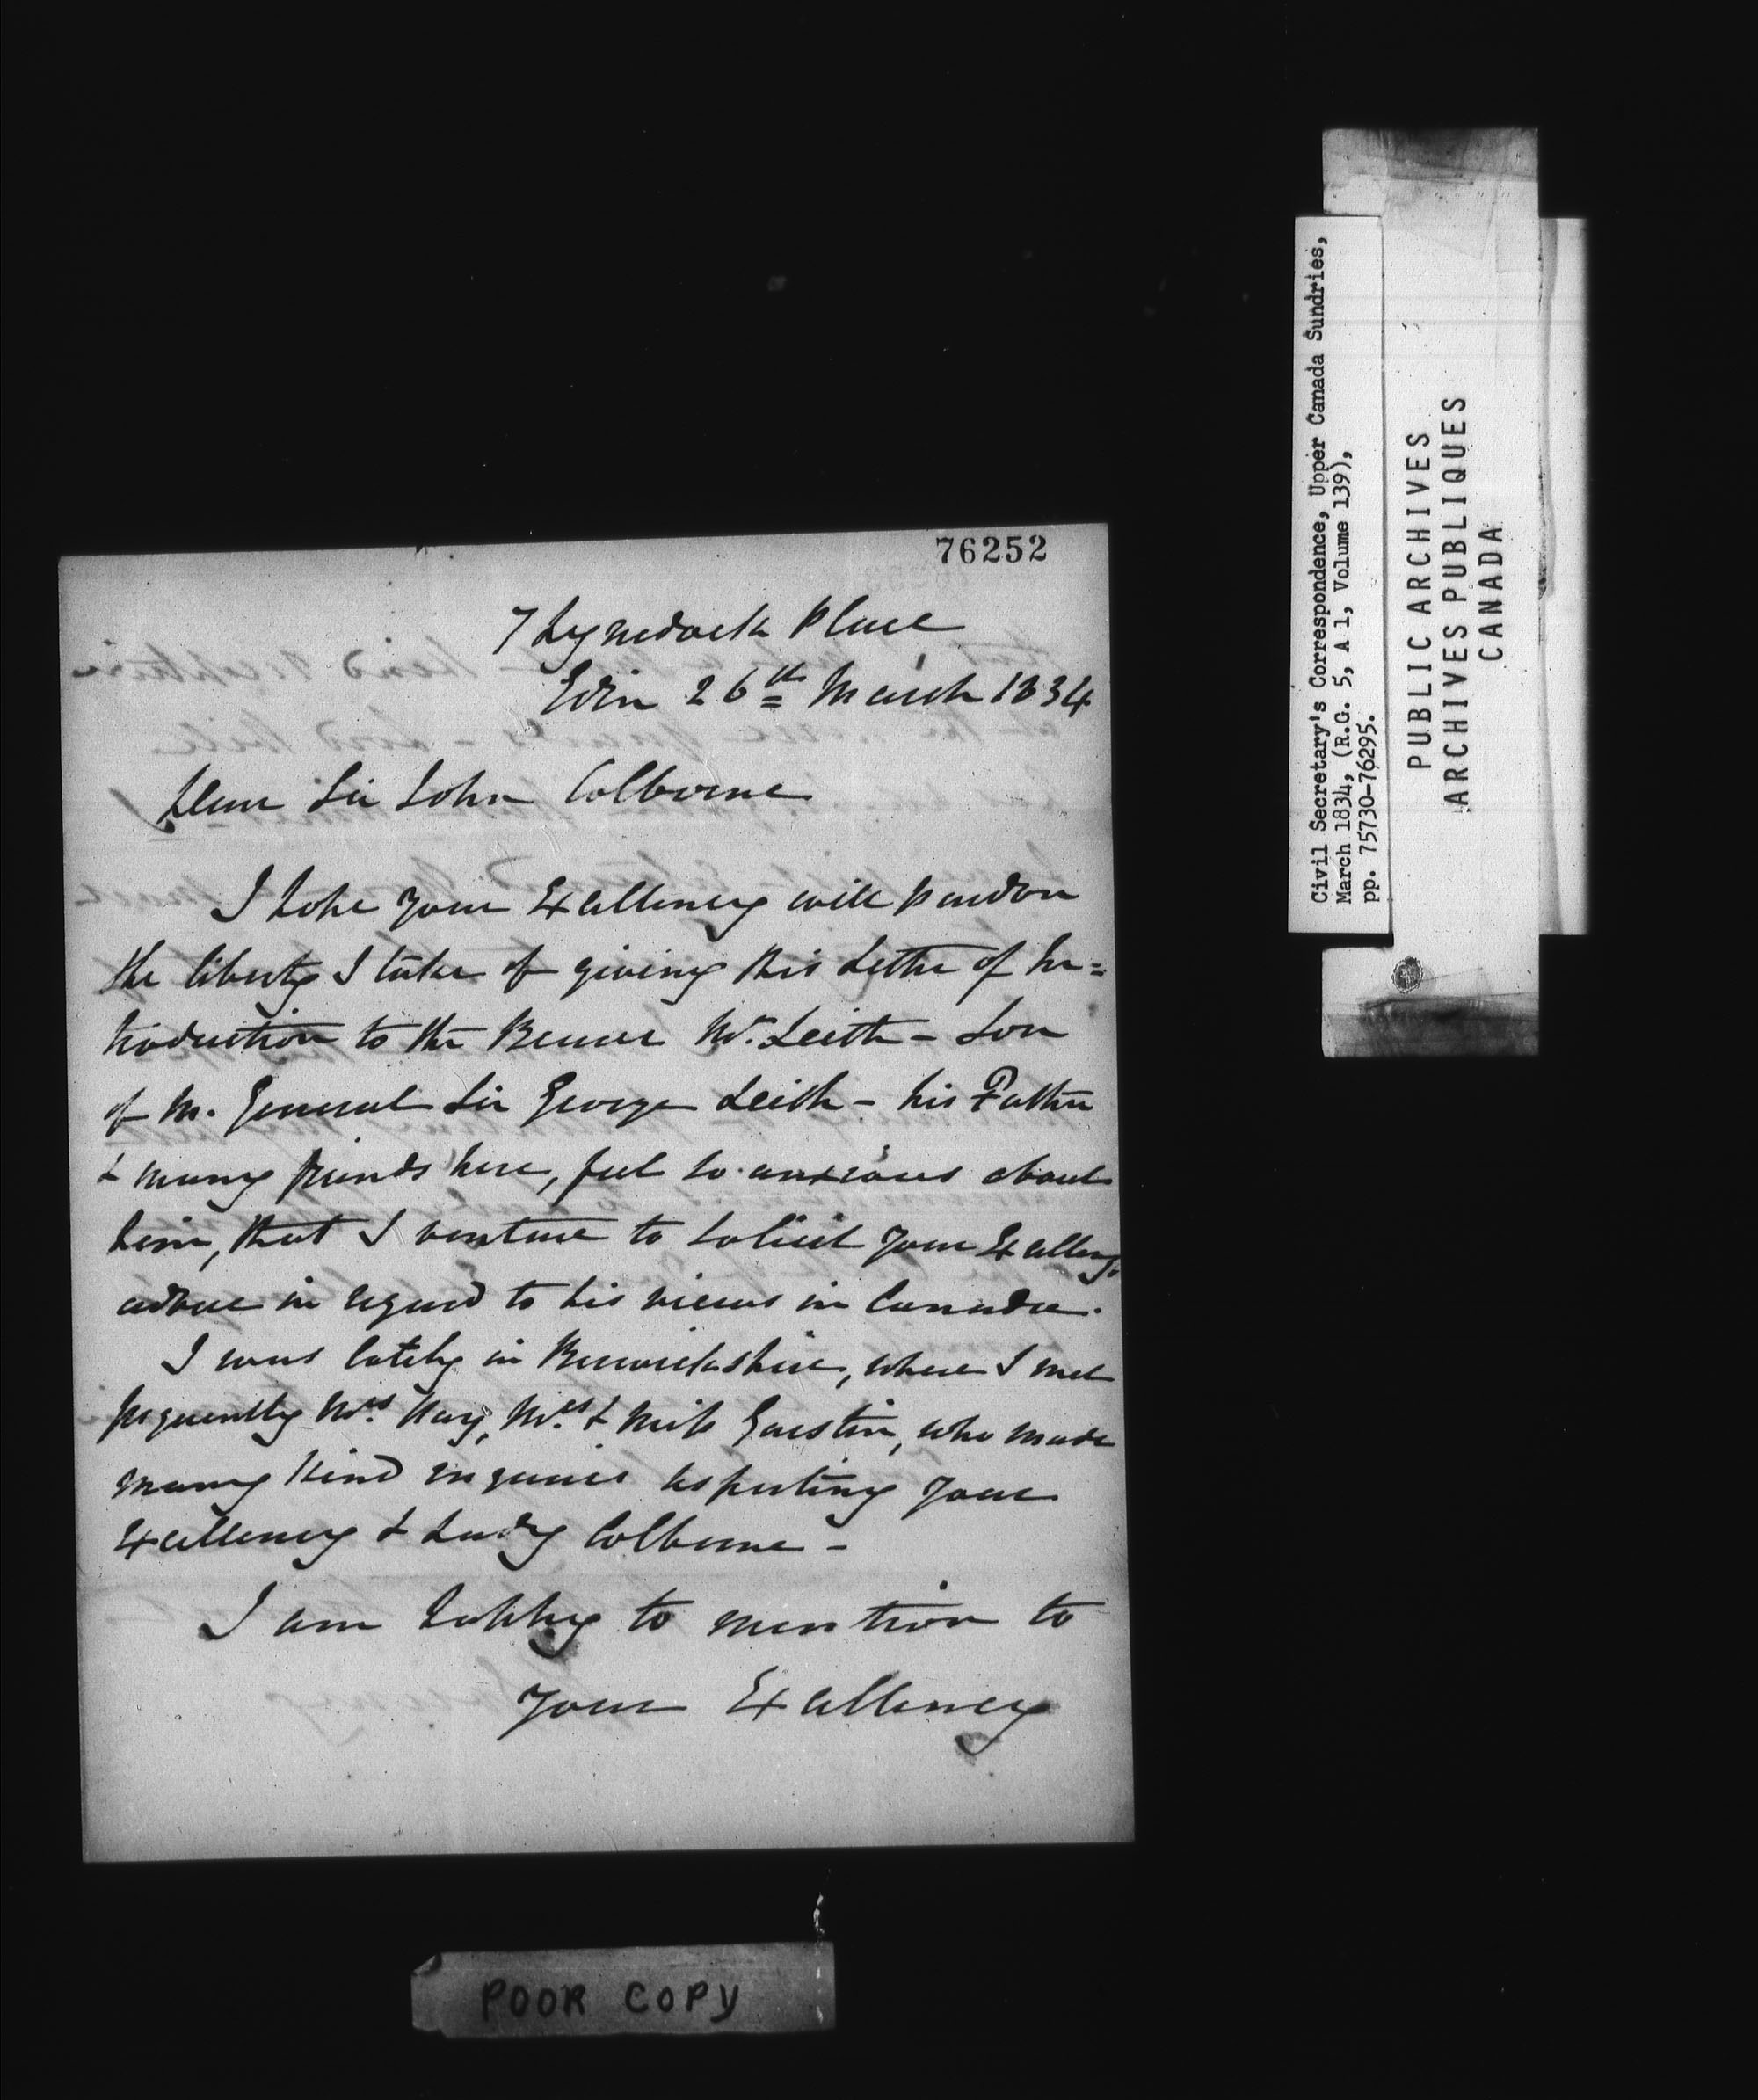 76252
7 Lynedoch Place
Edin 26th March 1834
Dear Sir John Colborne
I hope Your Excellency will pardon
the liberty I take of giving this Letter of In=
troduction to the Bearer Mr. Leith - Son
of M. General Sir George Leith - his Father
& many friends here, feel so anxious about
him, that I venture to solicit Your Excellency's
advice in regard to his views in Canada.
I was lately in Berwickshire, where I met
frequently Mrs. Kay, Mrs. & Miss Gaustin, who made
many kind inquiries respecting Your
Excellency & Lady Colborne -
I am happy to mention to
Your Excellency
POOR COPY
Civil Secretary's Correspondence, Upper Canada Sundries,
March 1834, (R.G. 5, A 1, Volume 139),
pp. 75730-76295.
PUBLIC ARCHIVES
ARCHIVES PUBLIQUES
CANADA